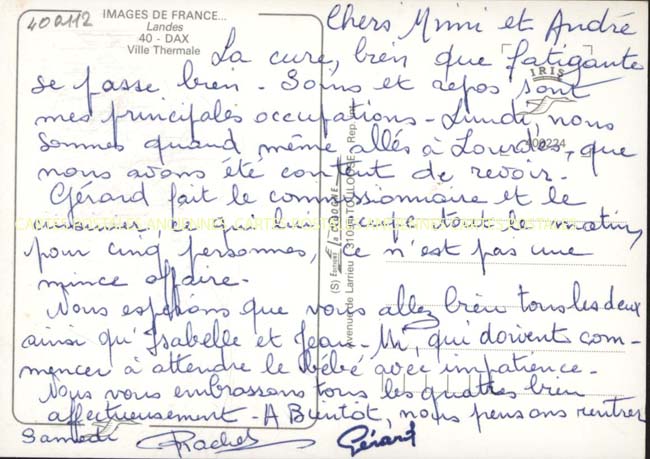 400112
IMAGES DE FRANCE...
Landes
40 - DAX
Ville Thermale
Chers Mimi et André
La cure, bien que fatigante
se passe bien - Soins et repos sont
IRIS
mes principales occupations - Lundi, nous
sommes quand même allés à Lourdes, que
400224
nous avons été content de revoir.
Gérard fait le commissionnaire et le
cuisinier ce qui lui occupe tout le matin,
pour cinq personnes, ce n'est pas une
mince affaire.
Nous espérons que vous allez bien tous les deux
ainsi qu'Isabelle et Jean-M, qui doivent com-
mencer à attendre le bébé avec impatience.
Nous vous embrassons tous les quattres bien
affectueusement - A Bientôt, nous pensons rentrer
Samedi Rachel Gérard
Avenue de Larrieu 31094 TOULOUSE